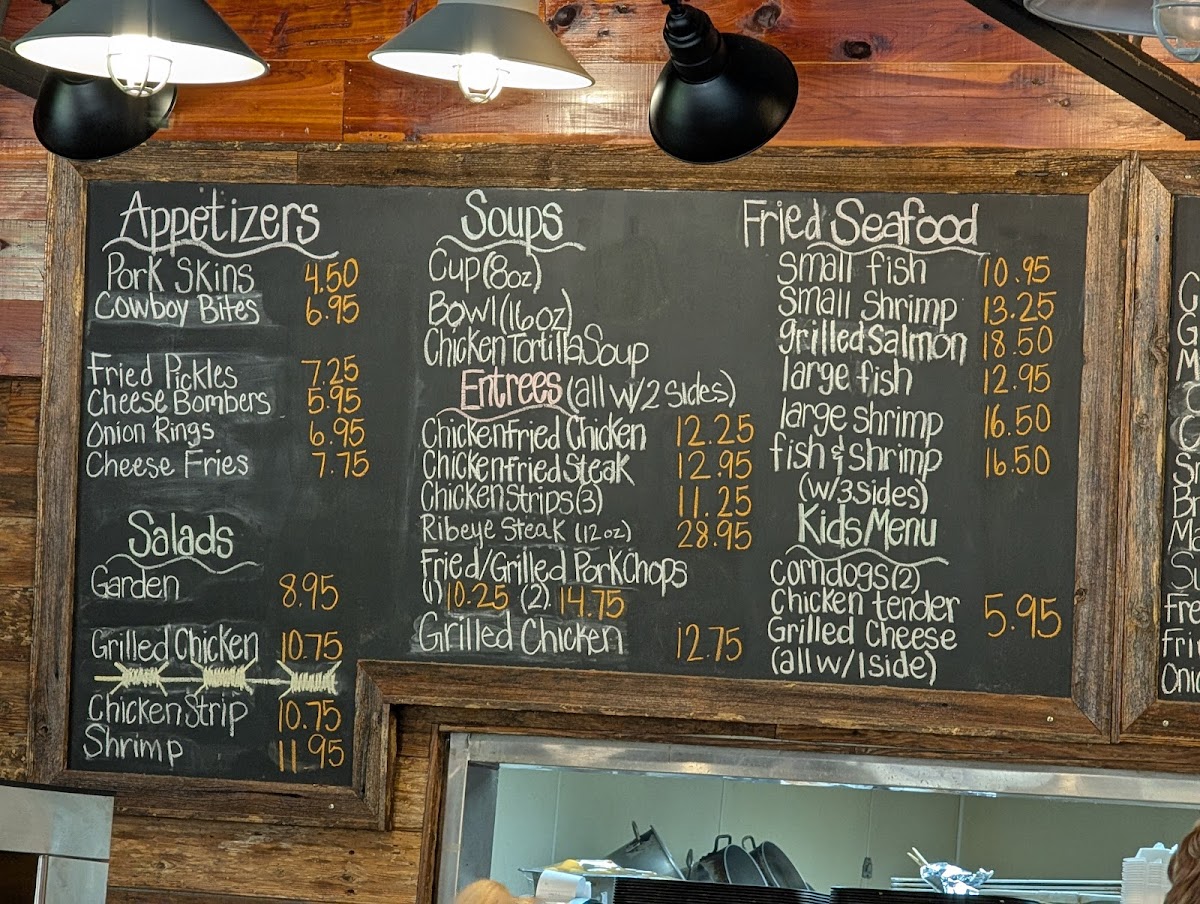 Appetizers
Pork Skins 4.50
Cowboy Bites 6.95
Fried Pickles 7.25
Cheese Bombers 5.95
Onion Rings 6.95
Cheese Fries 7.75
Salads
Garden 8.95
Grilled Chicken 10.75
Chicken Strip 10.75
Shrimp 11.95
Soups
Cup (8oz)
Bowl (16oz)
Chicken Tortilla Soup
Entrees (all w/2 sides)
Chicken Fried Chicken 12.25
Chicken Fried Steak 12.95
Chicken Strips (3) 11.25
Ribeye Steak (12oz) 28.95
Fried/Grilled Pork Chops
(1) 10.25 (2) 14.75
Grilled Chicken 12.75
Fried Seafood
small fish 10.95
small shrimp 13.25
grilled Salmon 18.50
large fish 12.95
large shrimp 16.50
fish & shrimp 16.50
(w/3 sides)
Kids Menu
corndogs (2)
Chicken tender 5.95
Grilled Cheese
(all w/1 side)